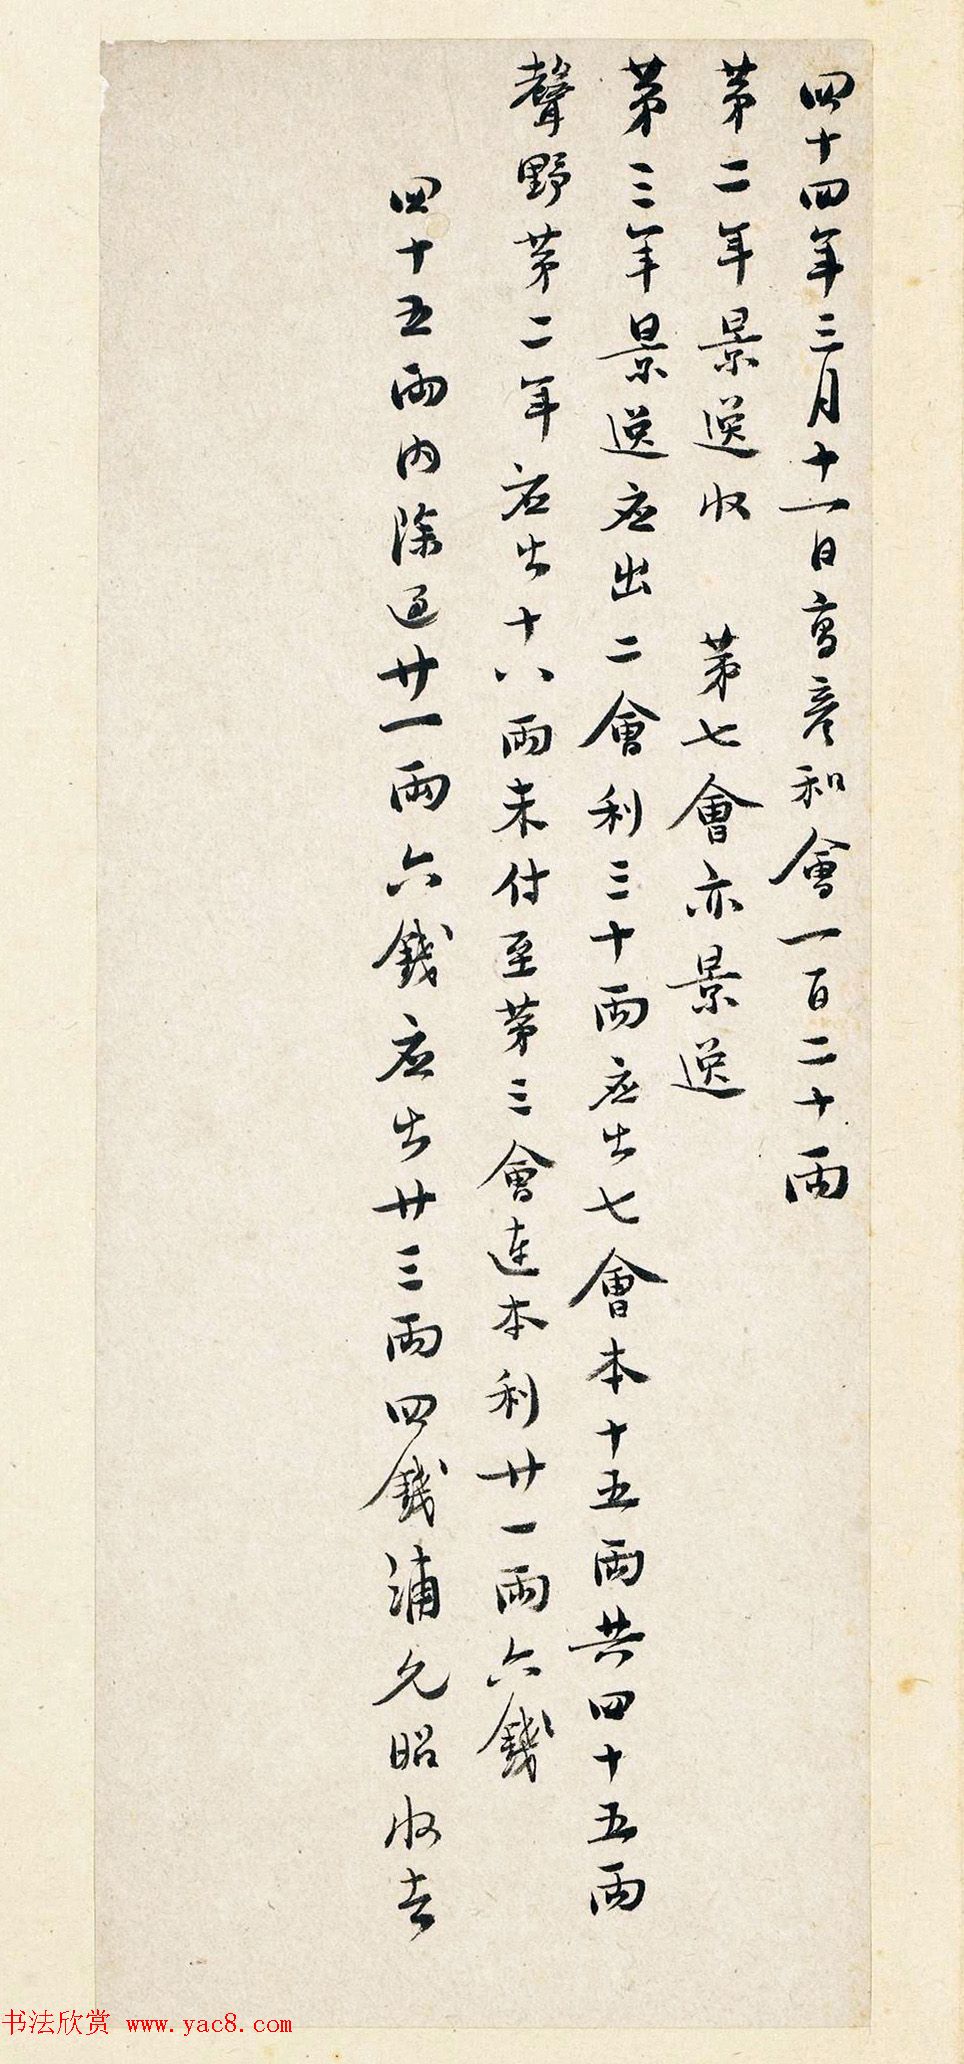 四十四年三月十一日高彦和會一百二十兩
第二年景逆收 第七會亦景逆
第三年景逆应出二會利三十兩应出七會本十五兩共四十五兩
聲野第二年应出十八兩未付至第三會連本利廿一兩六錢
四十五兩内除過廿一兩六錢应出廿三兩四錢浦允昭收去
书法欣赏 www.yac8.com